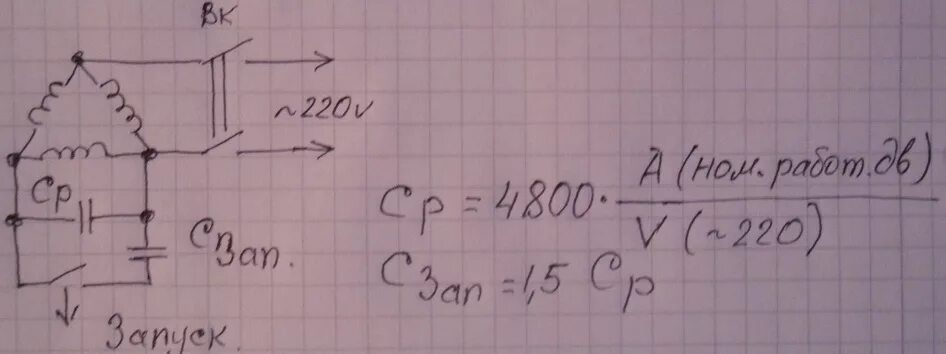 ВК
~220V
Ср
Сзап.
Запуск.
Ср = 4800 · А (ном. работ. дв) / V (~220)
Сзап = 1,5 Ср